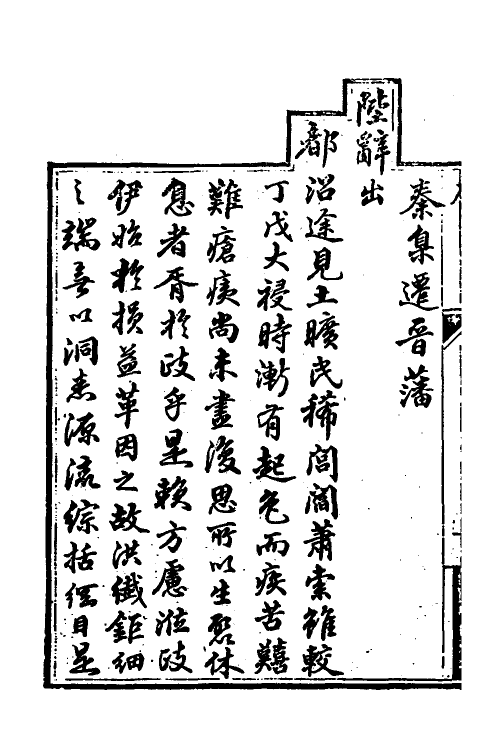 秦臬遷晉藩
陛辭出
都沿途見土曠民稀閭閻蕭索雖較
丁戊大祲時漸有起色而疾苦囏
難瘡痍尚未盡復思所以生聚休
息者胥於歧乎是賴方慮涖歧
伊始於損益革因之故洪纖鉅細
之端無以洞悉源流綜括綱目是